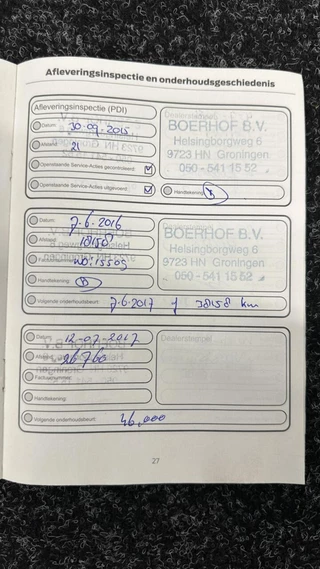 Afleveringsinspectie en onderhoudsgeschiedenis
Afleveringsinspectie (PDI)
Datum: 30-09-2015
Afstand: 21
Openstaande Service-Acties gecontroleerd:
Openstaande Service-Acties uitgevoerd:
Dealerstempel
BOERHOF B.V.
Helsingborgweg 6
9723 HN Groningen
050 - 541 15 52
Handtekening:
Datum: 7-6-2016
Afstand: 18158
Handtekening:
BOERHOF B.V.
Helsingborgweg 6
9723 HN Groningen
050 - 541 15 52
Volgende onderhoudsbeurt: 7-6-2017 / 38158 km
Datum: 12-07-2017
Afstand: 26760
Factuurnummer:
Handtekening:
Dealerstempel
Volgende onderhoudsbeurt: 46,000
27